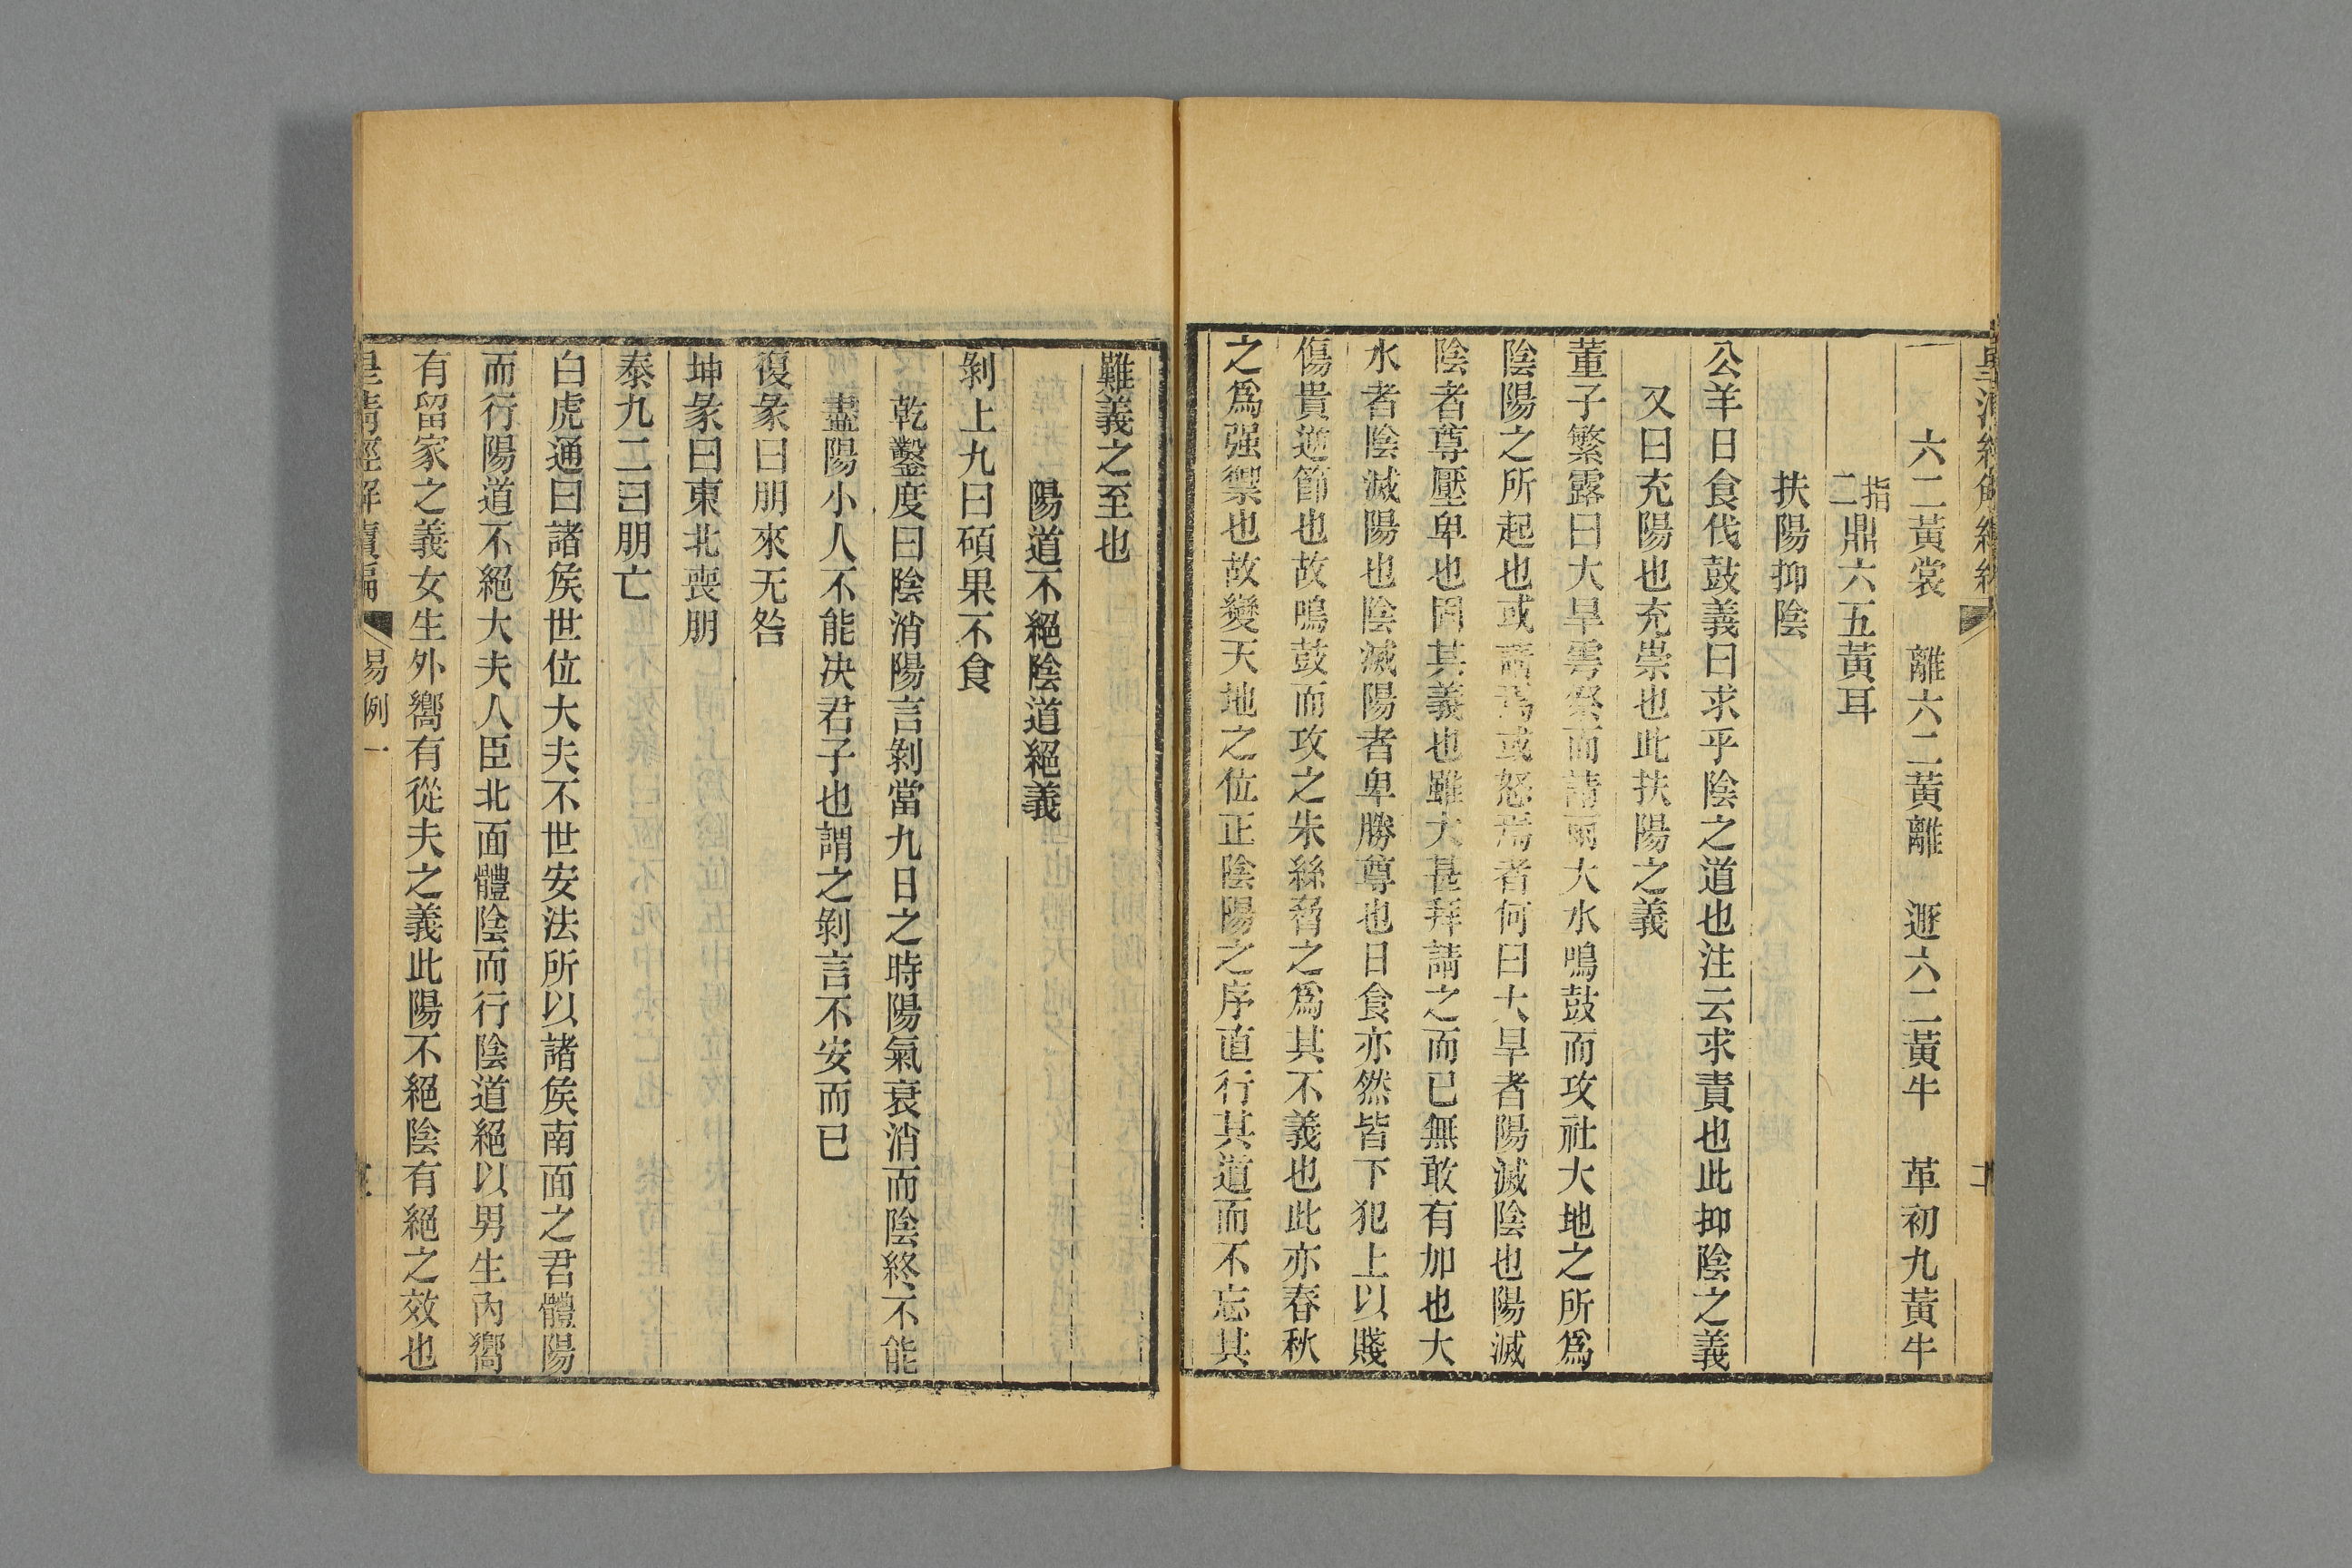 六二黃裳　離六二黃離　遯六二黃牛　革初九黃牛
指二鼎六五黃耳
扶陽抑陰
公羊日食伐鼓義曰求乎陰之道也注云求責也此抑陰之義
又曰充陽也充崇也此扶陽之義
董子繁露曰大旱雩祭而請雨大水鳴鼓而攻社大地之所爲
陰陽之所起也或請焉或怒焉者何曰大旱者陽滅陰也陽滅
陰者尊壓卑也固其義也雖大甚拜請之而已無敢有加也大
水者陰滅陽也陰滅陽者卑勝尊也日食亦然皆下犯上以賤
傷貴逆節也故鳴鼓而攻之朱絲脅之爲其不義也此亦春秋
之爲强禦也故變天地之位正陰陽之序直行其道而不忘其
難義之至也
陽道不絕陰道絕義
剝上九曰碩果不食
乾鑿度曰陰消陽言剝當九日之時陽氣衰消而陰終不能
盡陽小人不能决君子也謂之剝言不安而已
復彖曰朋來无咎
坤彖曰東北喪朋
泰九二曰朋亡
白虎通曰諸矦世位大夫不世安法所以諸矦南面之君體陽
而行陽道不絕大夫人臣北面體陰而行陰道絕以男生內嚮
有留家之義女生外嚮有從夫之義此陽不絕陰有絕之效也
皇淸經解續編
易例一